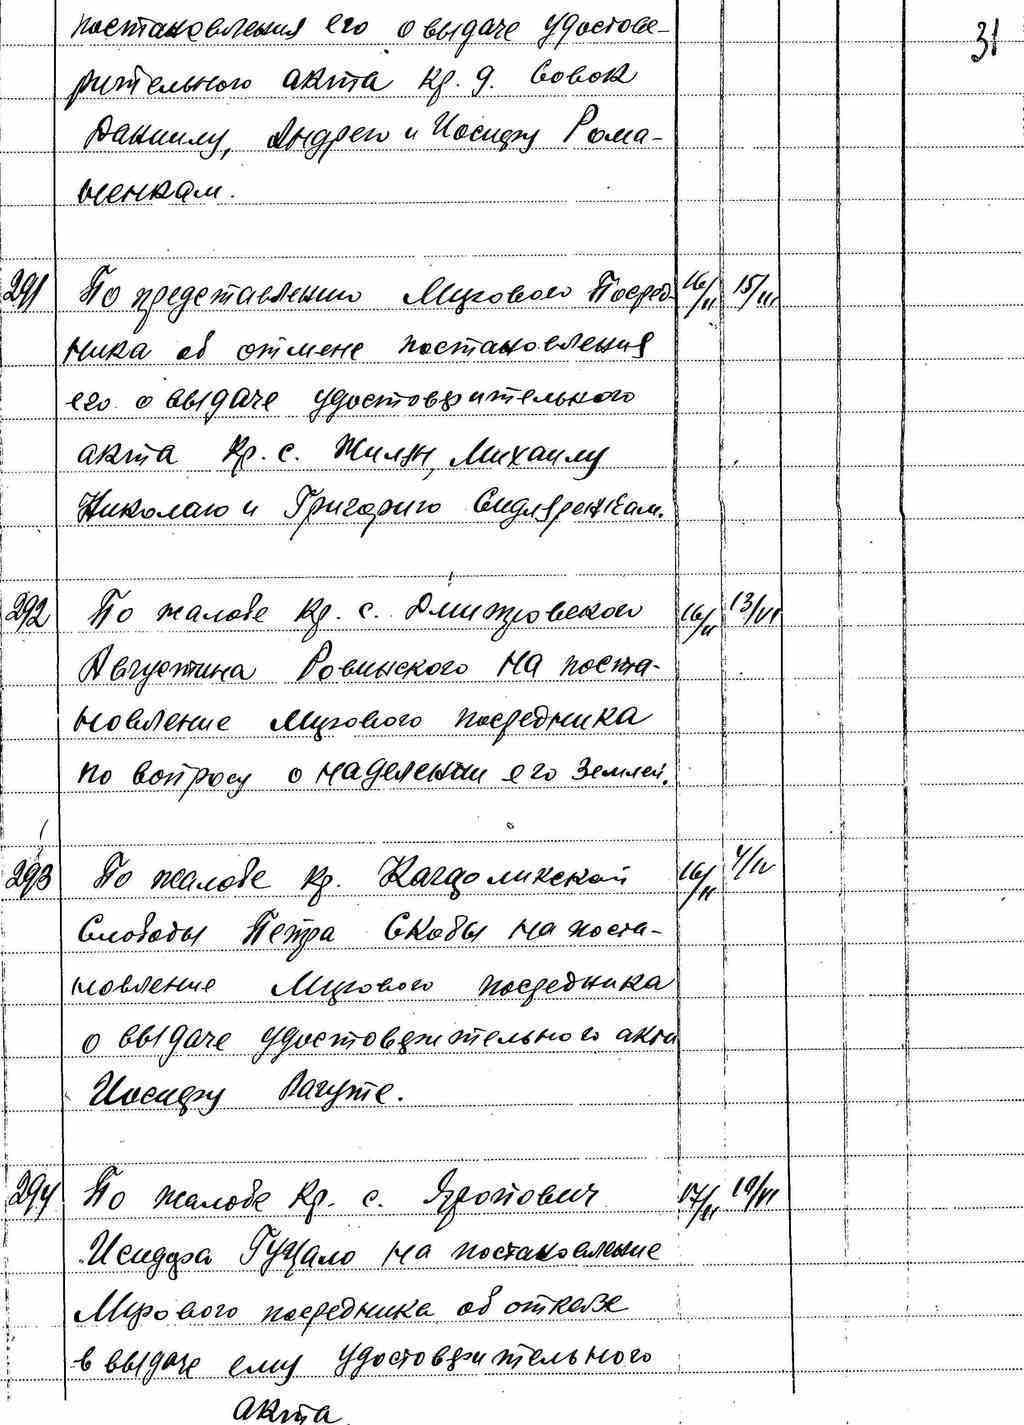 постановления его о выдаче удостове-
31
рительного акта кр. д. Совок
Даниилу, Андрею и Иосифу Рома-
ненкам.
291 По представлению Мирового Посред- 16/II 15/III
ника об отмене постановления
его о выдаче удостоверительного
акта Кр. с. Жилян, Михаилу
Николаю и Григорию Сидляренкам.
292 По жалобе Кр. с. Дмитровского 16/II 13/VI
Августина Ровинского на поста-
новление Мирового посредника
по вопросу о наделении его землей.
293 По жалобе кр. Кагарликской 16/II 4/IV
Слободы Петра Скобы на поста-
новление Мирового посредника
о выдаче удостоверительного акта
Иосифу Рагуте.
294 По жалобе Кр. с. Яропович 17/II 19/VI
Исидора Гуцало на постановление
Мирового посредника об отказе
в выдаче ему удостоверительного
акта.